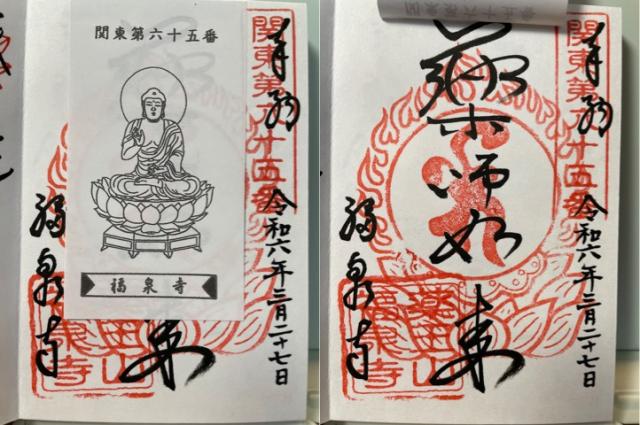 関東第六十五番
福泉寺
関東第六十五番
奉納
令和六年三月二十七日
来
福泉寺
関東第六十五番
奉納
令和六年三月二十七日
薬師如来
福泉寺